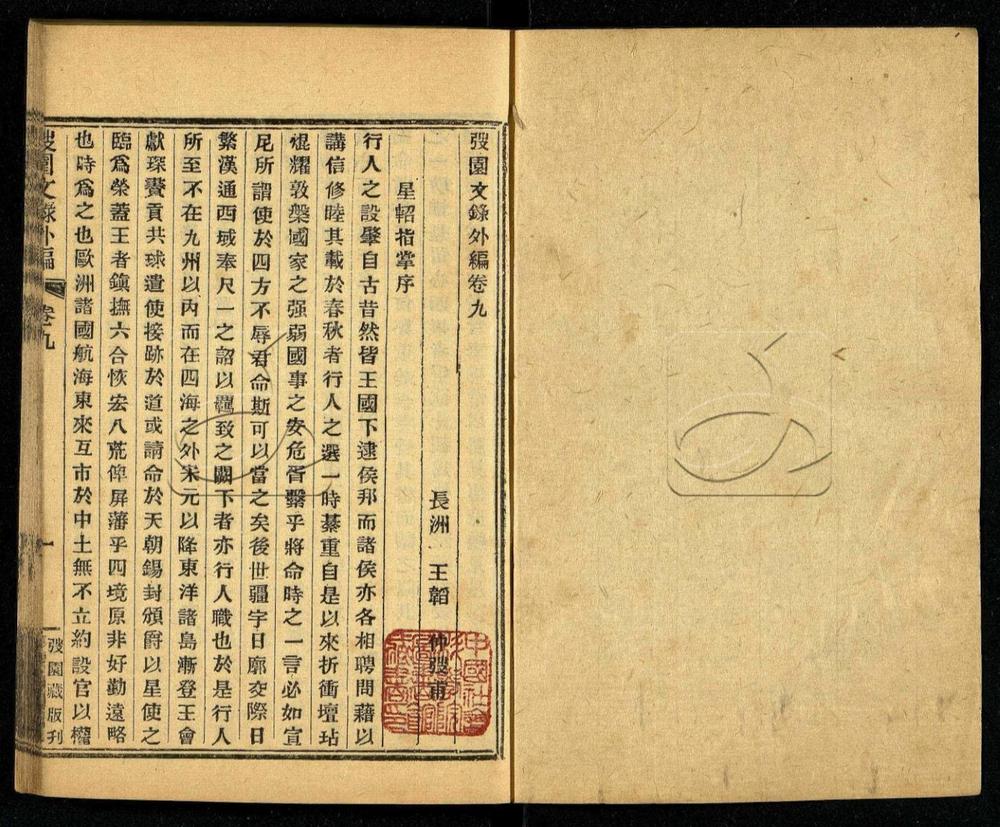 弢園文錄外編卷九
長洲 王韜 仲弢甫
星軺指掌序
行人之設肇自古昔然皆王國下逮侯邦而諸侯亦各相聘問藉以
講信修睦其載於春秋者行人之選一時綦重自是以來折衝壇坫
焜耀敦槃國家之强弱國事之安危胥繫乎將命時之一言必如宣
尼所謂使於四方不辱君命斯可以當之矣後世疆宇日廓交際日
繁漢通西域奉尺一之詔以羈致之闕下者亦行人職也於是行人
所至不在九州以內而在四海之外宋元以降東洋諸島漸登王會
獻琛賮貢共球遣使接跡於道或請命於天朝錫封頒爵以星使之
臨爲榮蓋王者鎭撫六合恢宏八荒俾屏藩乎四境原非好勤遠略
也時爲之也歐洲諸國航海東來互市於中土無不立約設官以權
弢園文錄外編 卷九 一 弢園藏版刊